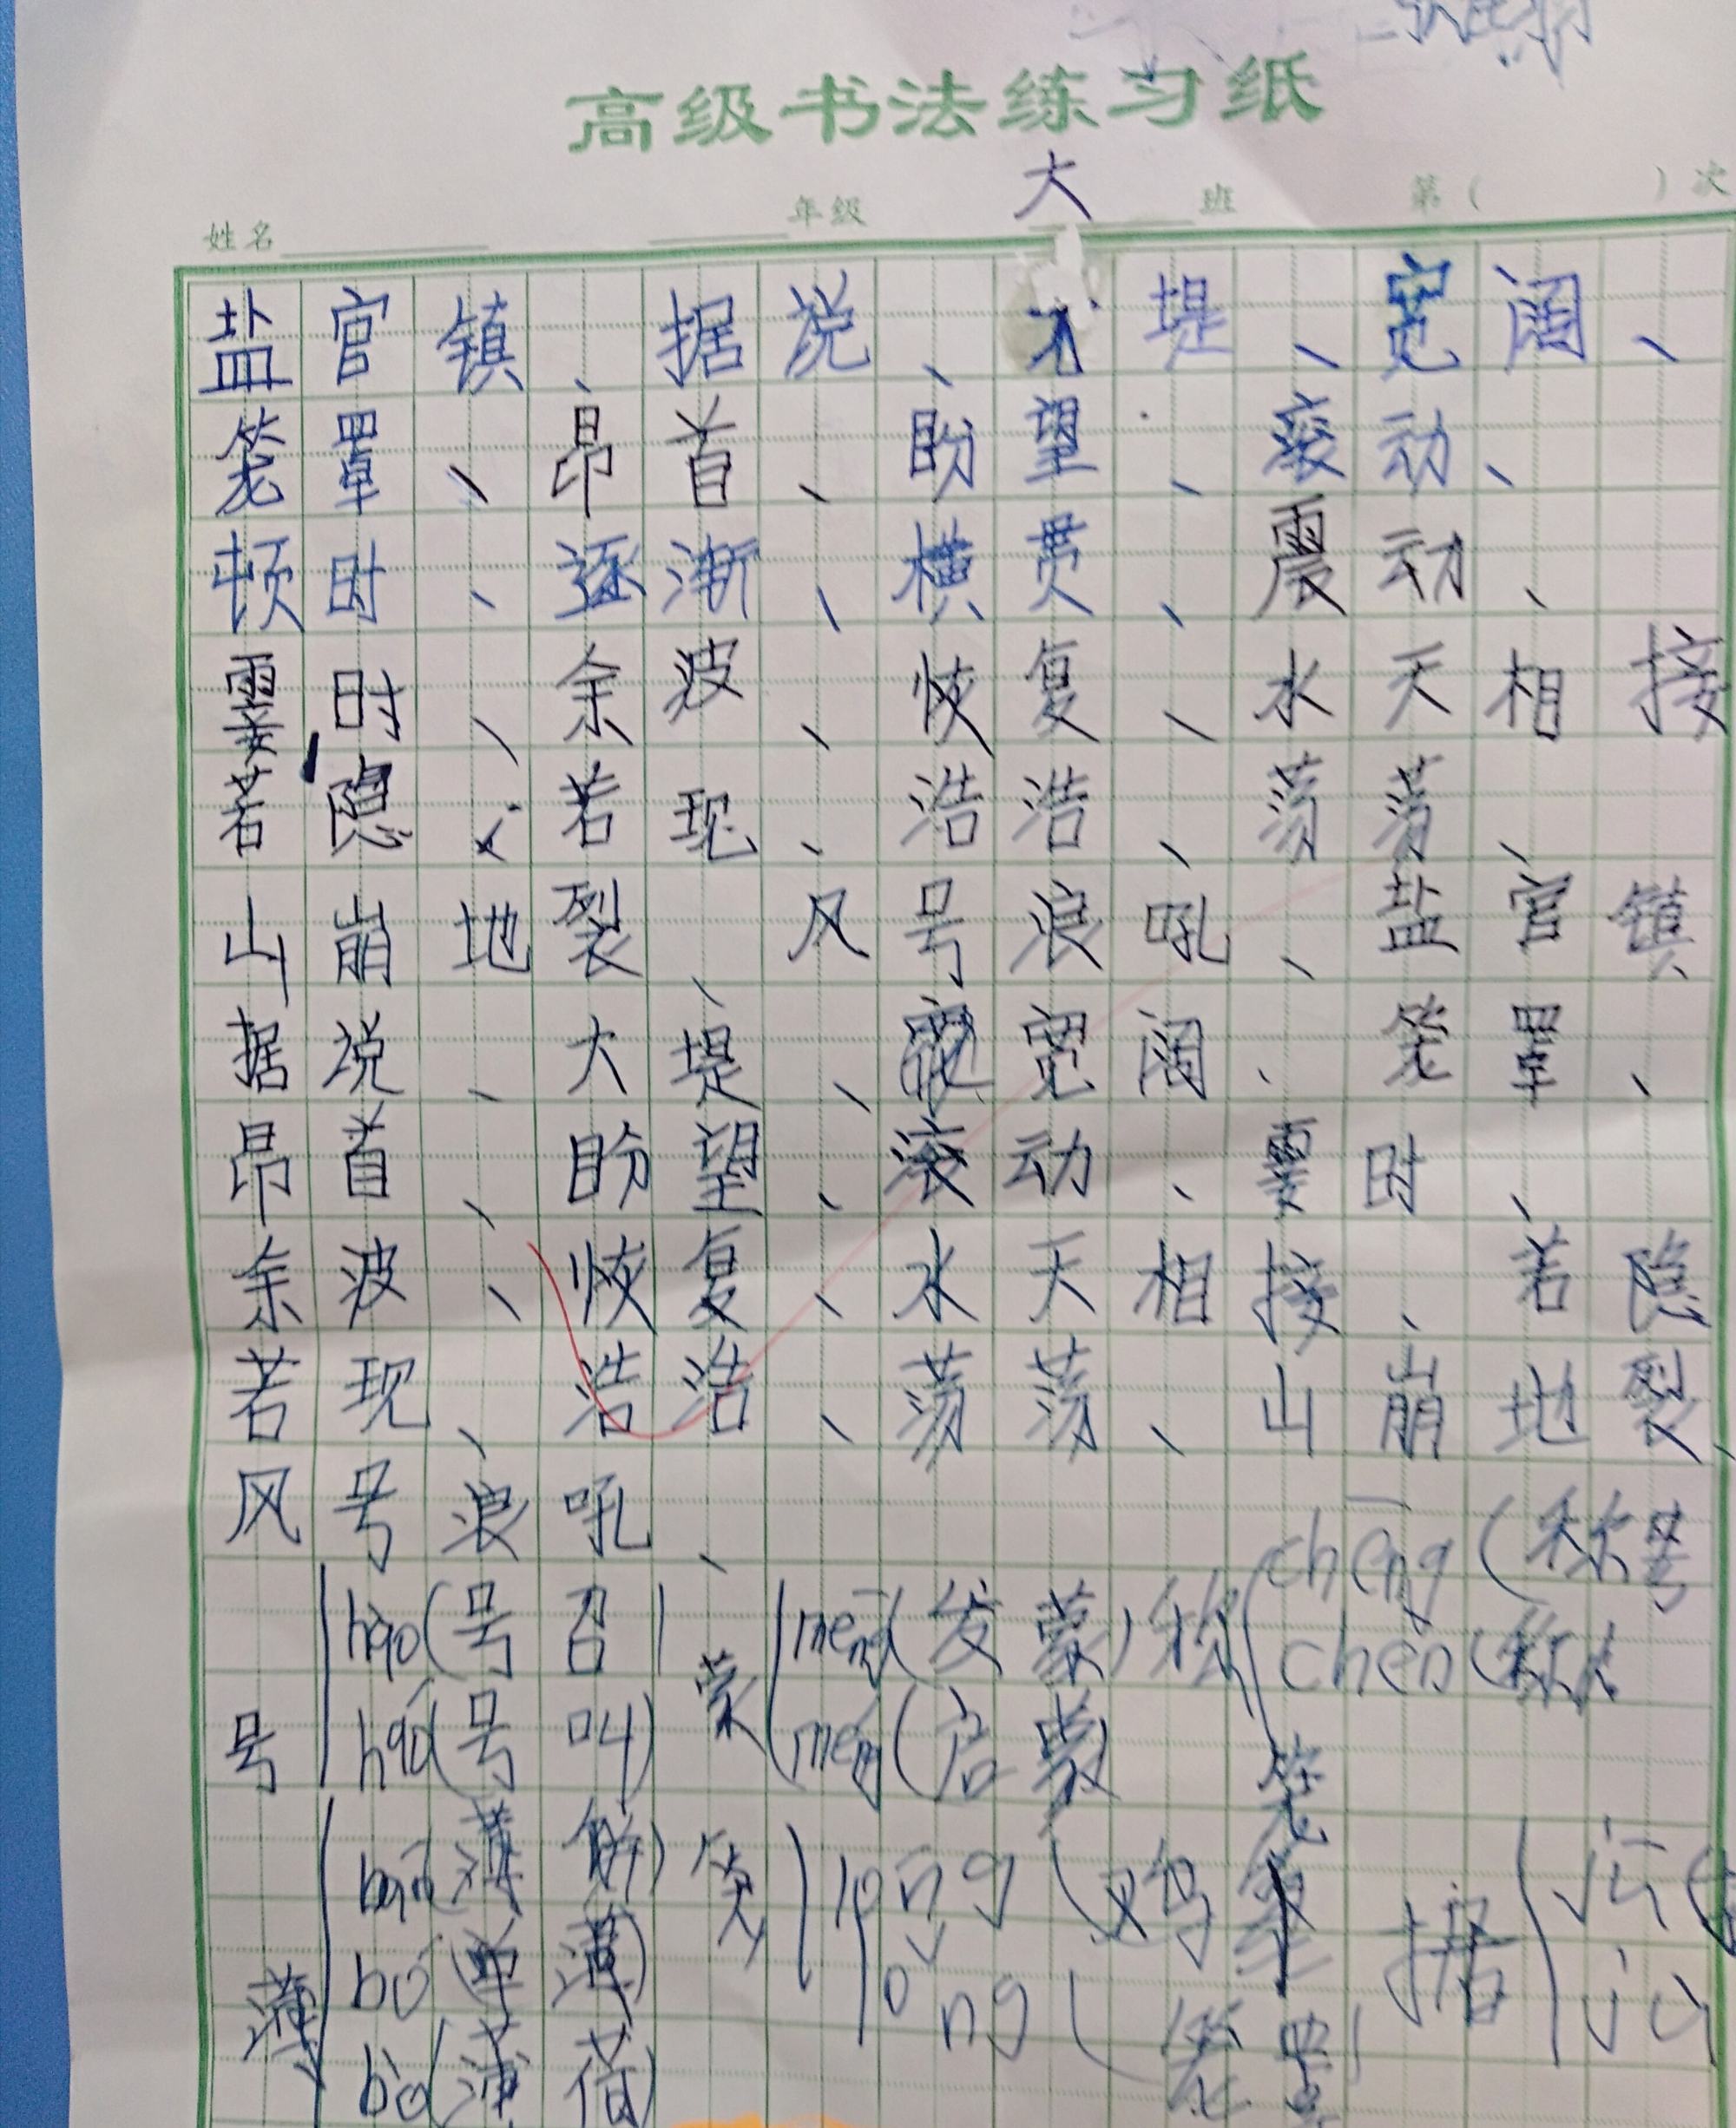 高级书法练习纸
大
姓名 年级 班 第( )次
盐官镇、据说、大堤、宽阔、
笼罩、昂首、盼望、滚动、
顿时、逐渐、横贯、震动、
霎时、余波、恢复、水天相接
若隐、若现、浩浩、荡荡、
山崩地裂、风号浪吼、盐官镇
据说、大堤、宽阔、笼罩、
昂首、盼望、滚动、霎时、
余波、恢复、水天相接、若隐
若现、浩浩、荡荡、山崩地裂、
风号浪吼、
号 hào(号召) háo(号叫)
蒙 mēng(发蒙) méng(启蒙)
称 chēng(称号 chèn(称
薄 báo(薄饼) bó(单薄) bò(薄荷)
笼 lóng(鸡笼 lǒng(笼罩)
据 jū( jù